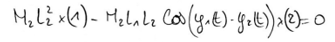 M₂L₂² x(1) - M₂L₁L₂ Cos(φ₁(t) - φ₂(t)) x(2) = 0